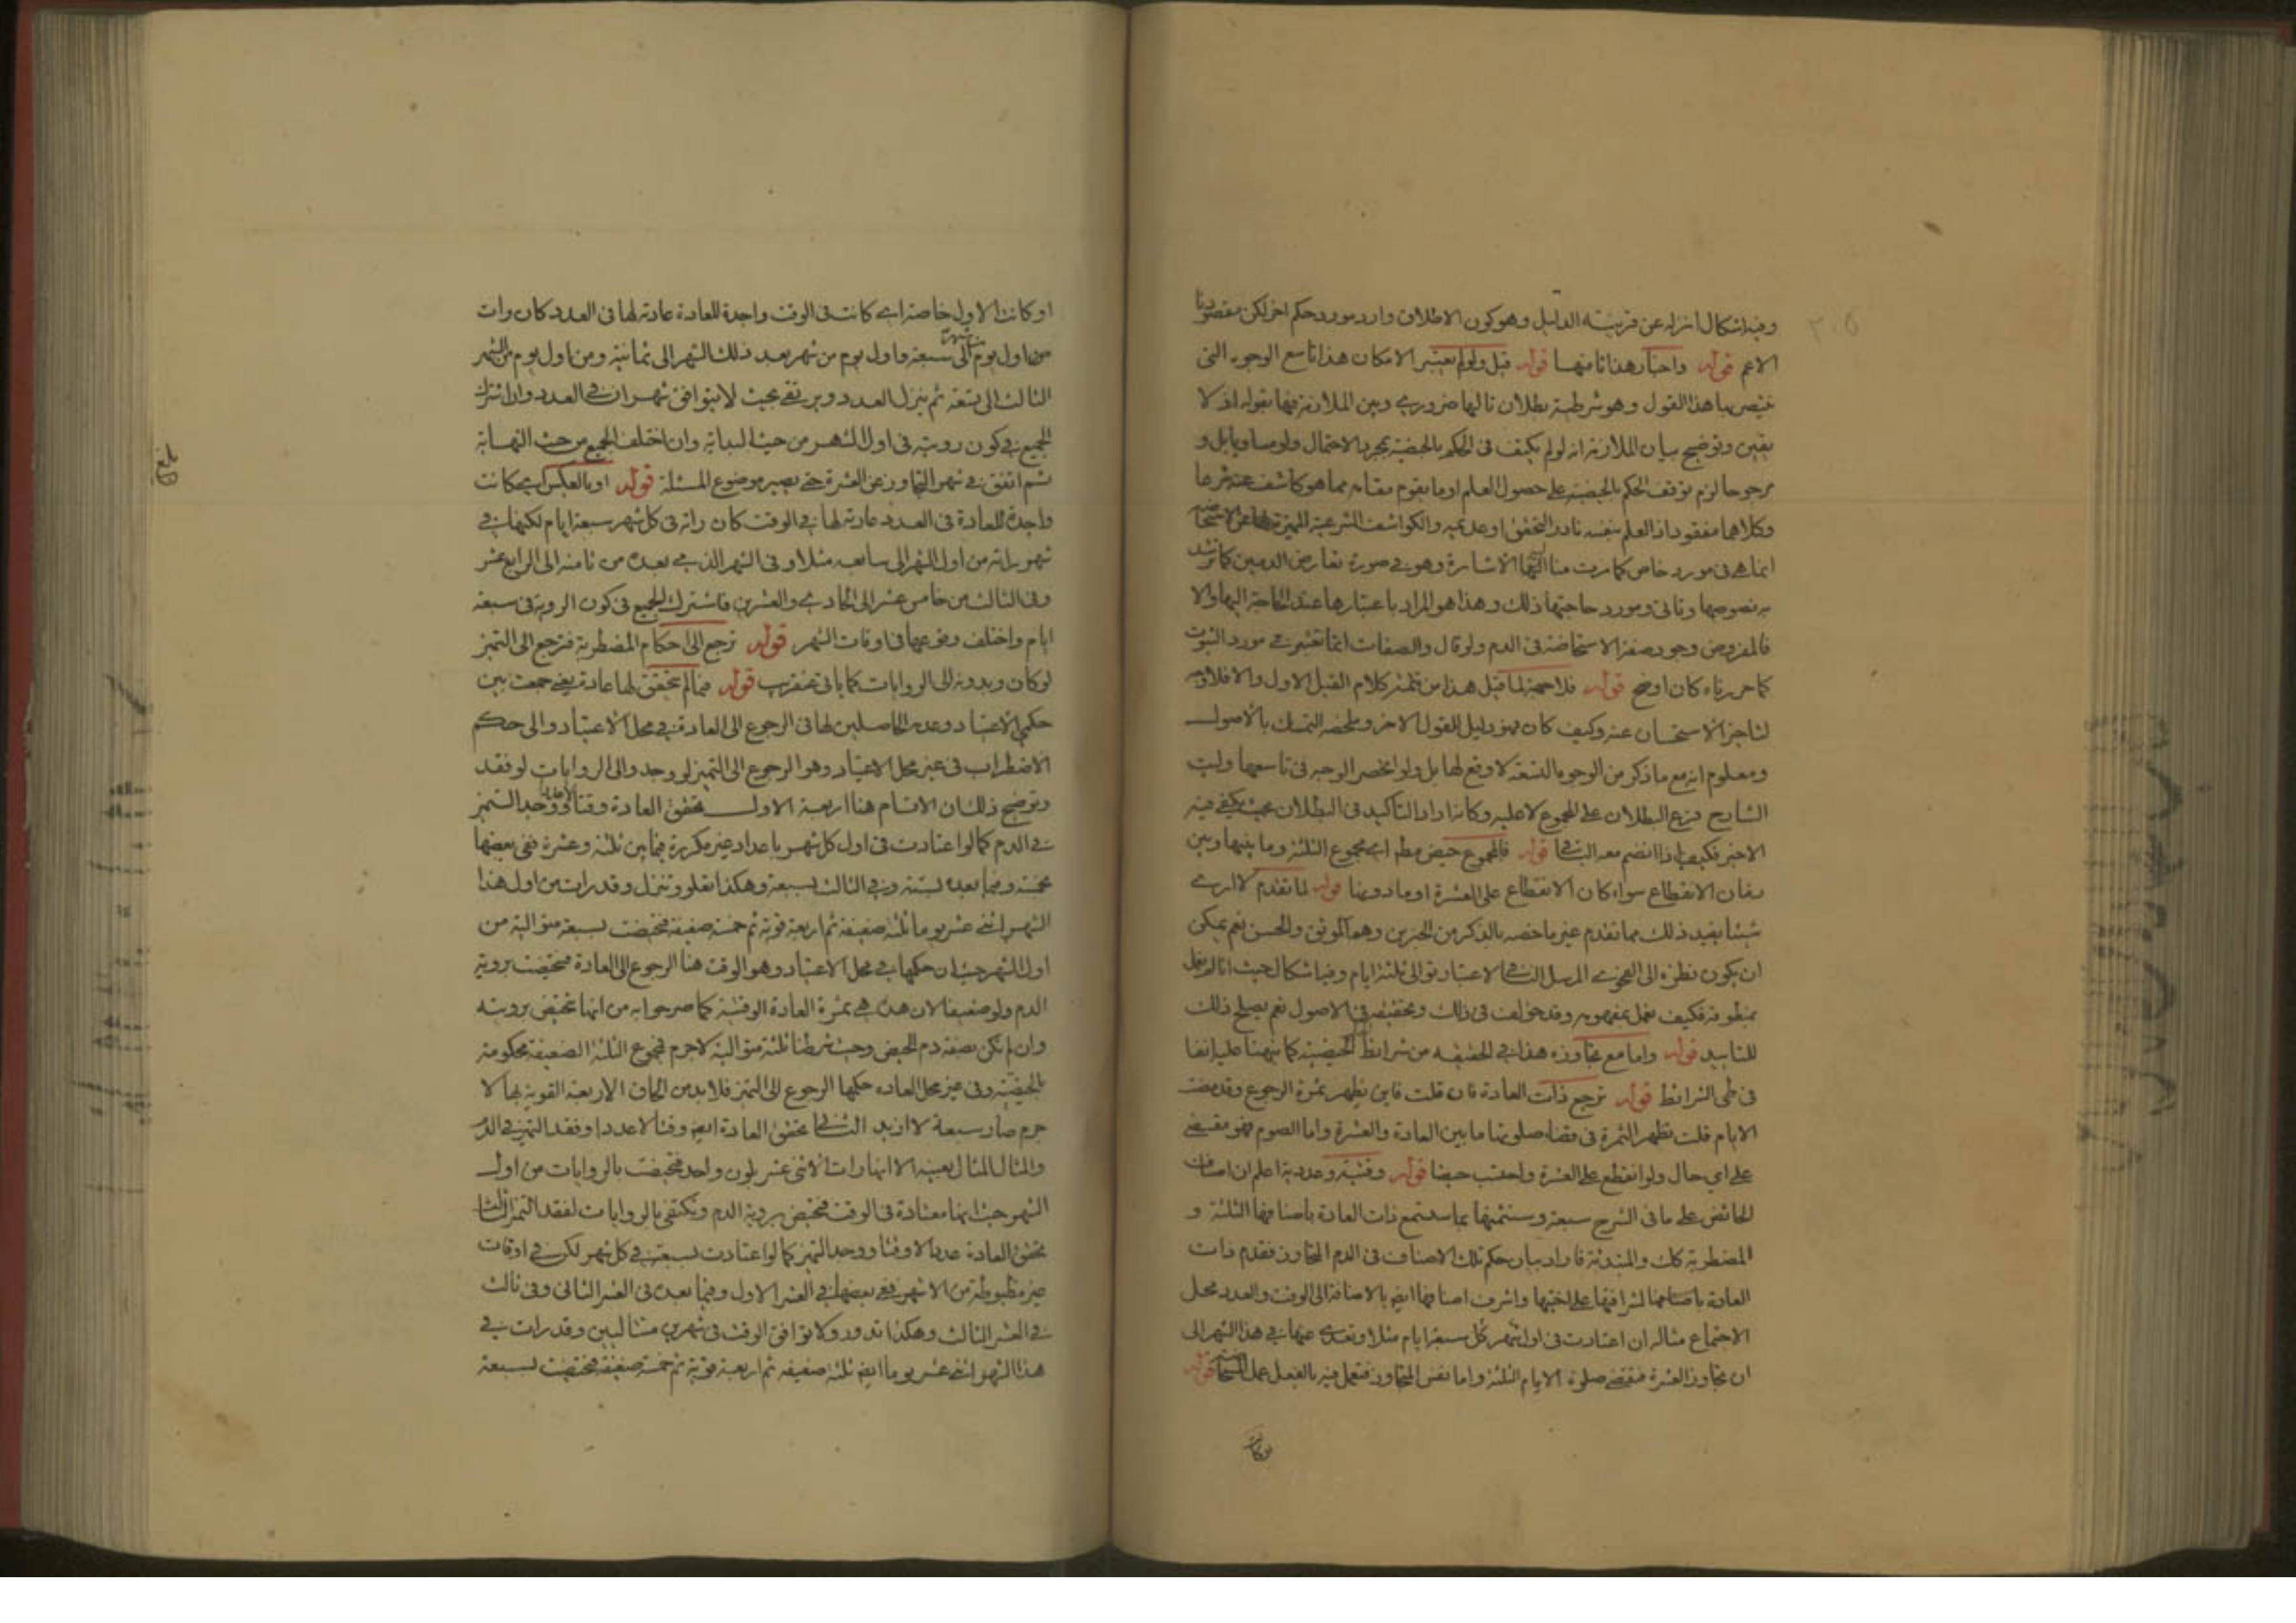 وفيه اشكال انزله عن قرينيته الدليل وهو كون الاطلاق وارد مورد حكم اخر لكن مقصودنا
الاعم قوله واختار هذا ثامنها قوله قيل ولو لم يعتبر الامكان هذا تاسع الوجوه التي
يختص بها هذا القول وهو شرطية بطلان تاليها ضروري وبين الملازمة فيها بقوله اذ لا
يقين وتوضيح بيان الملازمة انه لو لم يكتف في الحكم بالحيضية بمجرد الاحتمال ولو مساويا بل و
مرجوحا لزم توقف الحكم بالحيضية على حصول العلم او ما يقوم مقامه مما هو كاشف عنه شرعا
وكلاهما مفقود اذ العلم بنفسه نادر التحقق او عديمه والكواشف الشرعية المميزة لها عن الاستحاضة
انما هي في مورد خاص كما مرت منا اليها الاشارة وهو في صورة تعارض الدمين كما ترشد
به نصوصها وتاتي ومورد حاجتها ذلك وهذا هو المراد باعتبارها عند الحاجة اليها والا
فالمفروض وجود صفة الاستحاضة في الدم ولو قال والصفات انما تعتبر في مورد الثبوت
كما حررناه كان اوضح قوله فلا حجة لما قيل هذا من تتمة كلام القيل الاول والافلا وجه
لتاخير الاستحسان عنه وكيف كان فهو دليل للقول الاخر وملخصه التمسك بالاصول
ومعلوم انه مع ما ذكر من الوجوه التسعة لا وقع لها بل ولو انحصر الوجه في تاسعها وليت
الشارح فرع البطلان على المجموع لا عليه وكانه اراد التاكيد في البطلان بحيث يكفي فيه
الاخير فكيف اذا انضم معه البواقي قوله فالمجموع حيض مطم اي مجموع الثلثة وما بينها وبين
زمان الانقطاع سواء كان الانقطاع على العشرة او ما دونها قوله لما تقدم لا ارى
شيئا يفيد ذلك مما تقدم غير ما خصه بالذكر من الخبرين وهما الموثق والحسن نعم يمكن
ان يكون نظره الى الفحوى المرسل النافي لاعتبار توالي ثلثة ايام وفيه اشكال حيث انا لم نعمل
بمنطوقه فكيف نعمل بمفهومه وقد خولف في ذلك وتحقيقه في الاصول نعم يصلح ذلك
للتاييد قوله واما مع تجاوزه هذا في الحقيقه من شرائط الحيضية كما نبهنا عليه انفا
في طى الشرائط قوله ترجع ذات العادة فان قلت فاين يظهر ثمرة الرجوع وقد مضت
الايام قلت تظهر الثمرة في قضاء صلوتها ما بين العادة والعشرة واما الصوم فهو مقتضى
على اي حال ولو انقطع على العشرة واحتسب حيضا قوله وقتية وعددية اعلم ان اصناف
الحائض على ما في الشرح سبعة وستتمها بما ستسمع ذات العادة باصنافها الثلثة و
المضطربة كك والمبتدئة فاراد بيان حكم تلك الاصناف في الدم المتجاوز فقدم ذات
العادة باصنافها لشرافتها على اختيها واشرف اصنافها ايض بالاضافة الى الوقت والعدد محل
الاجتماع مثاله ان اعتادت في اول شهر كل سبعة ايام مثلا وتعدى عنها في هذا الشهر الى
ان تجاوز العشرة فتقضي صلوة الايام الثلثة واما نفس المتجاوز فتعمل فيه بالفعل عمل المستحاضة قوله
او كانت
او كانت الاول خاصة اي كانت في الوقت واجدة للعادة عادتها في العدد كان رات
من اول يوم شهر الى سبعة واول يوم من شهر بعد ذلك الشهر الى ثمانية ومن اول يوم من الشهر
الثالث الى تسعة ثم ينزل العدد ويرتقى بحيث لا يتوافق شهران في العدد وان اشترك
الجميع في كون رويته في اول الشهر من حيث البداية وان اختلف الجميع من حيث النهاية
ثم اتفق في شهر التجاوز عن العشرة حتى يصير موضوع المسئلة قوله او بالعكس اي كانت
واجدة للعادة في العدد عادتها في الوقت كان راته في كل شهر سبعة ايام لكنها في
شهر راته من اول الشهر الى سابعه مثلا وفي الشهر الذي بعده من ثامنه الى الرابع عشر
وفي الثالث من خامس عشر الى الحادي والعشرين فاشترك الجميع في كون الروية في سبعة
ايام واختلف وقوعها في اوقات الشهر قوله ترجع الى احكام المضطربة فترجع الى التميز
لو كان وبدونه الى الروايات كما ياتي عنقريب قوله فيما لم يتحقق لها عادة يعني جمعت بين
حكمي الاعتياد وعدمه الحاصلين لها في الرجوع الى العادة في محل الاعتياد والى حكم
الاضطراب في غير محل الاعتياد وهو الرجوع الى التميز لو وجد والى الروايات لو فقد
وتوضيح ذلك ان الاقسام هنا اربعة الاول تحقق العادة وقتا لا عددا ووجد التميز
في الدم كما لو اعتادت في اول كل شهر باعداد غير مكررة فيما بين ثلثة وعشرة ففي بعضها
بخمسة وفيما بعده بستة وفي الثالث بسبعة وهكذا تعلو وتنزل وقد رات من اول هذا
الشهر اثني عشر يوما ثلثة ضعيفة ثم اربعة قوية ثم خمسة ضعيفة فتحيضت بسبعة متوالية من
اول الشهر حيث ان حكمها في محل الاعتياد وهو الوقت هنا الرجوع الى العادة فتحيضت بروية
الدم ولو ضعيفا لان هذه هي ثمرة العادة الوقتية كما صرحوا به من انها تتحيض برويته
وان لم يكن بصفة دم الحيض وحيث شرطنا ثلثة متوالية لا جرم فمجموع الثلثة الضعيفة محكومة
بالحيضية وفي غير محل العادة حكمها الرجوع الى التميز فلا بد من الحاق الاربعة القوية بها لا
جرم صار سبعة لا ازيد الثاني تحقق العادة ايض وقتا لا عددا وفقد التميز في الدم
والمثال المثال بعينه الا انها رات الاثني عشر بلون واحد فتحيضت بالروايات من اول
الشهر حيث انها معتادة في الوقت فتحيض بروية الدم وتكتفي بالروايات لفقد التميز الثالث
تحقق العادة عددا لا وقتا ووجد التميز كما لو اعتادت بسبعة في كل شهر لكن في اوقات
غير مظبوطة من الاشهر ففي بعضها في العشر الاول وفيما بعده في العشر الثاني وفي ثالث
في العشر الثالث وهكذا تدور ولا توافق الوقت في شهرين متتاليين وقد رات في
هذا الشهر اثني عشر يوما ايض ثلثة ضعيفه ثم اربعة قوية ثم خمسة ضعيفة فتحيضت بسبعة
بلغ
٣٠٥